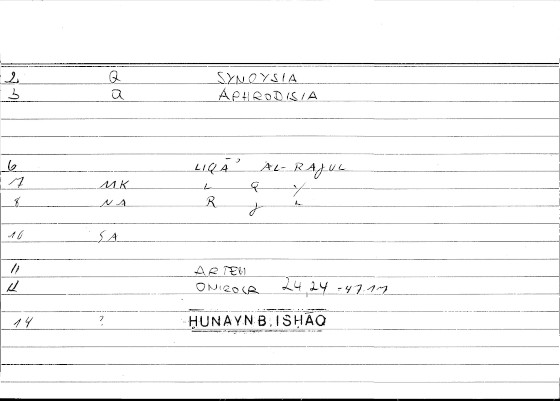 2 Q SYNOYSIA
3 Q APHRODISIA
6 LIQĀ' AL-RAJUL
7 MK L Q Y
8 NA R J L
10 SA
11 ARTEM
12 ONIROCR 24,24-47.17
14 ? ḤUNAYN B. ISḤĀQ